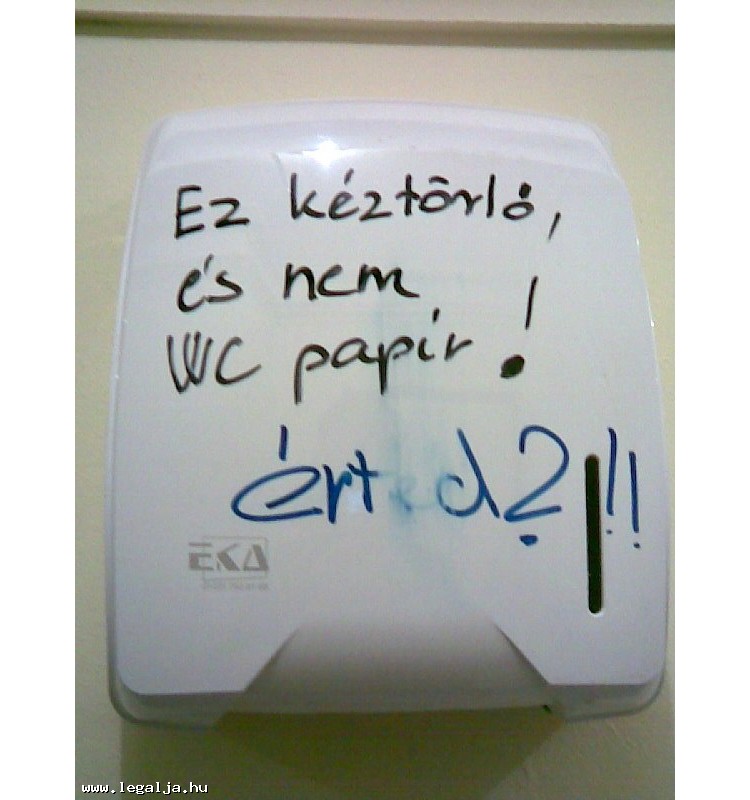 Ez kéztörlő,
és nem
WC papír!
érted?!!!
EKA
www.legalja.hu